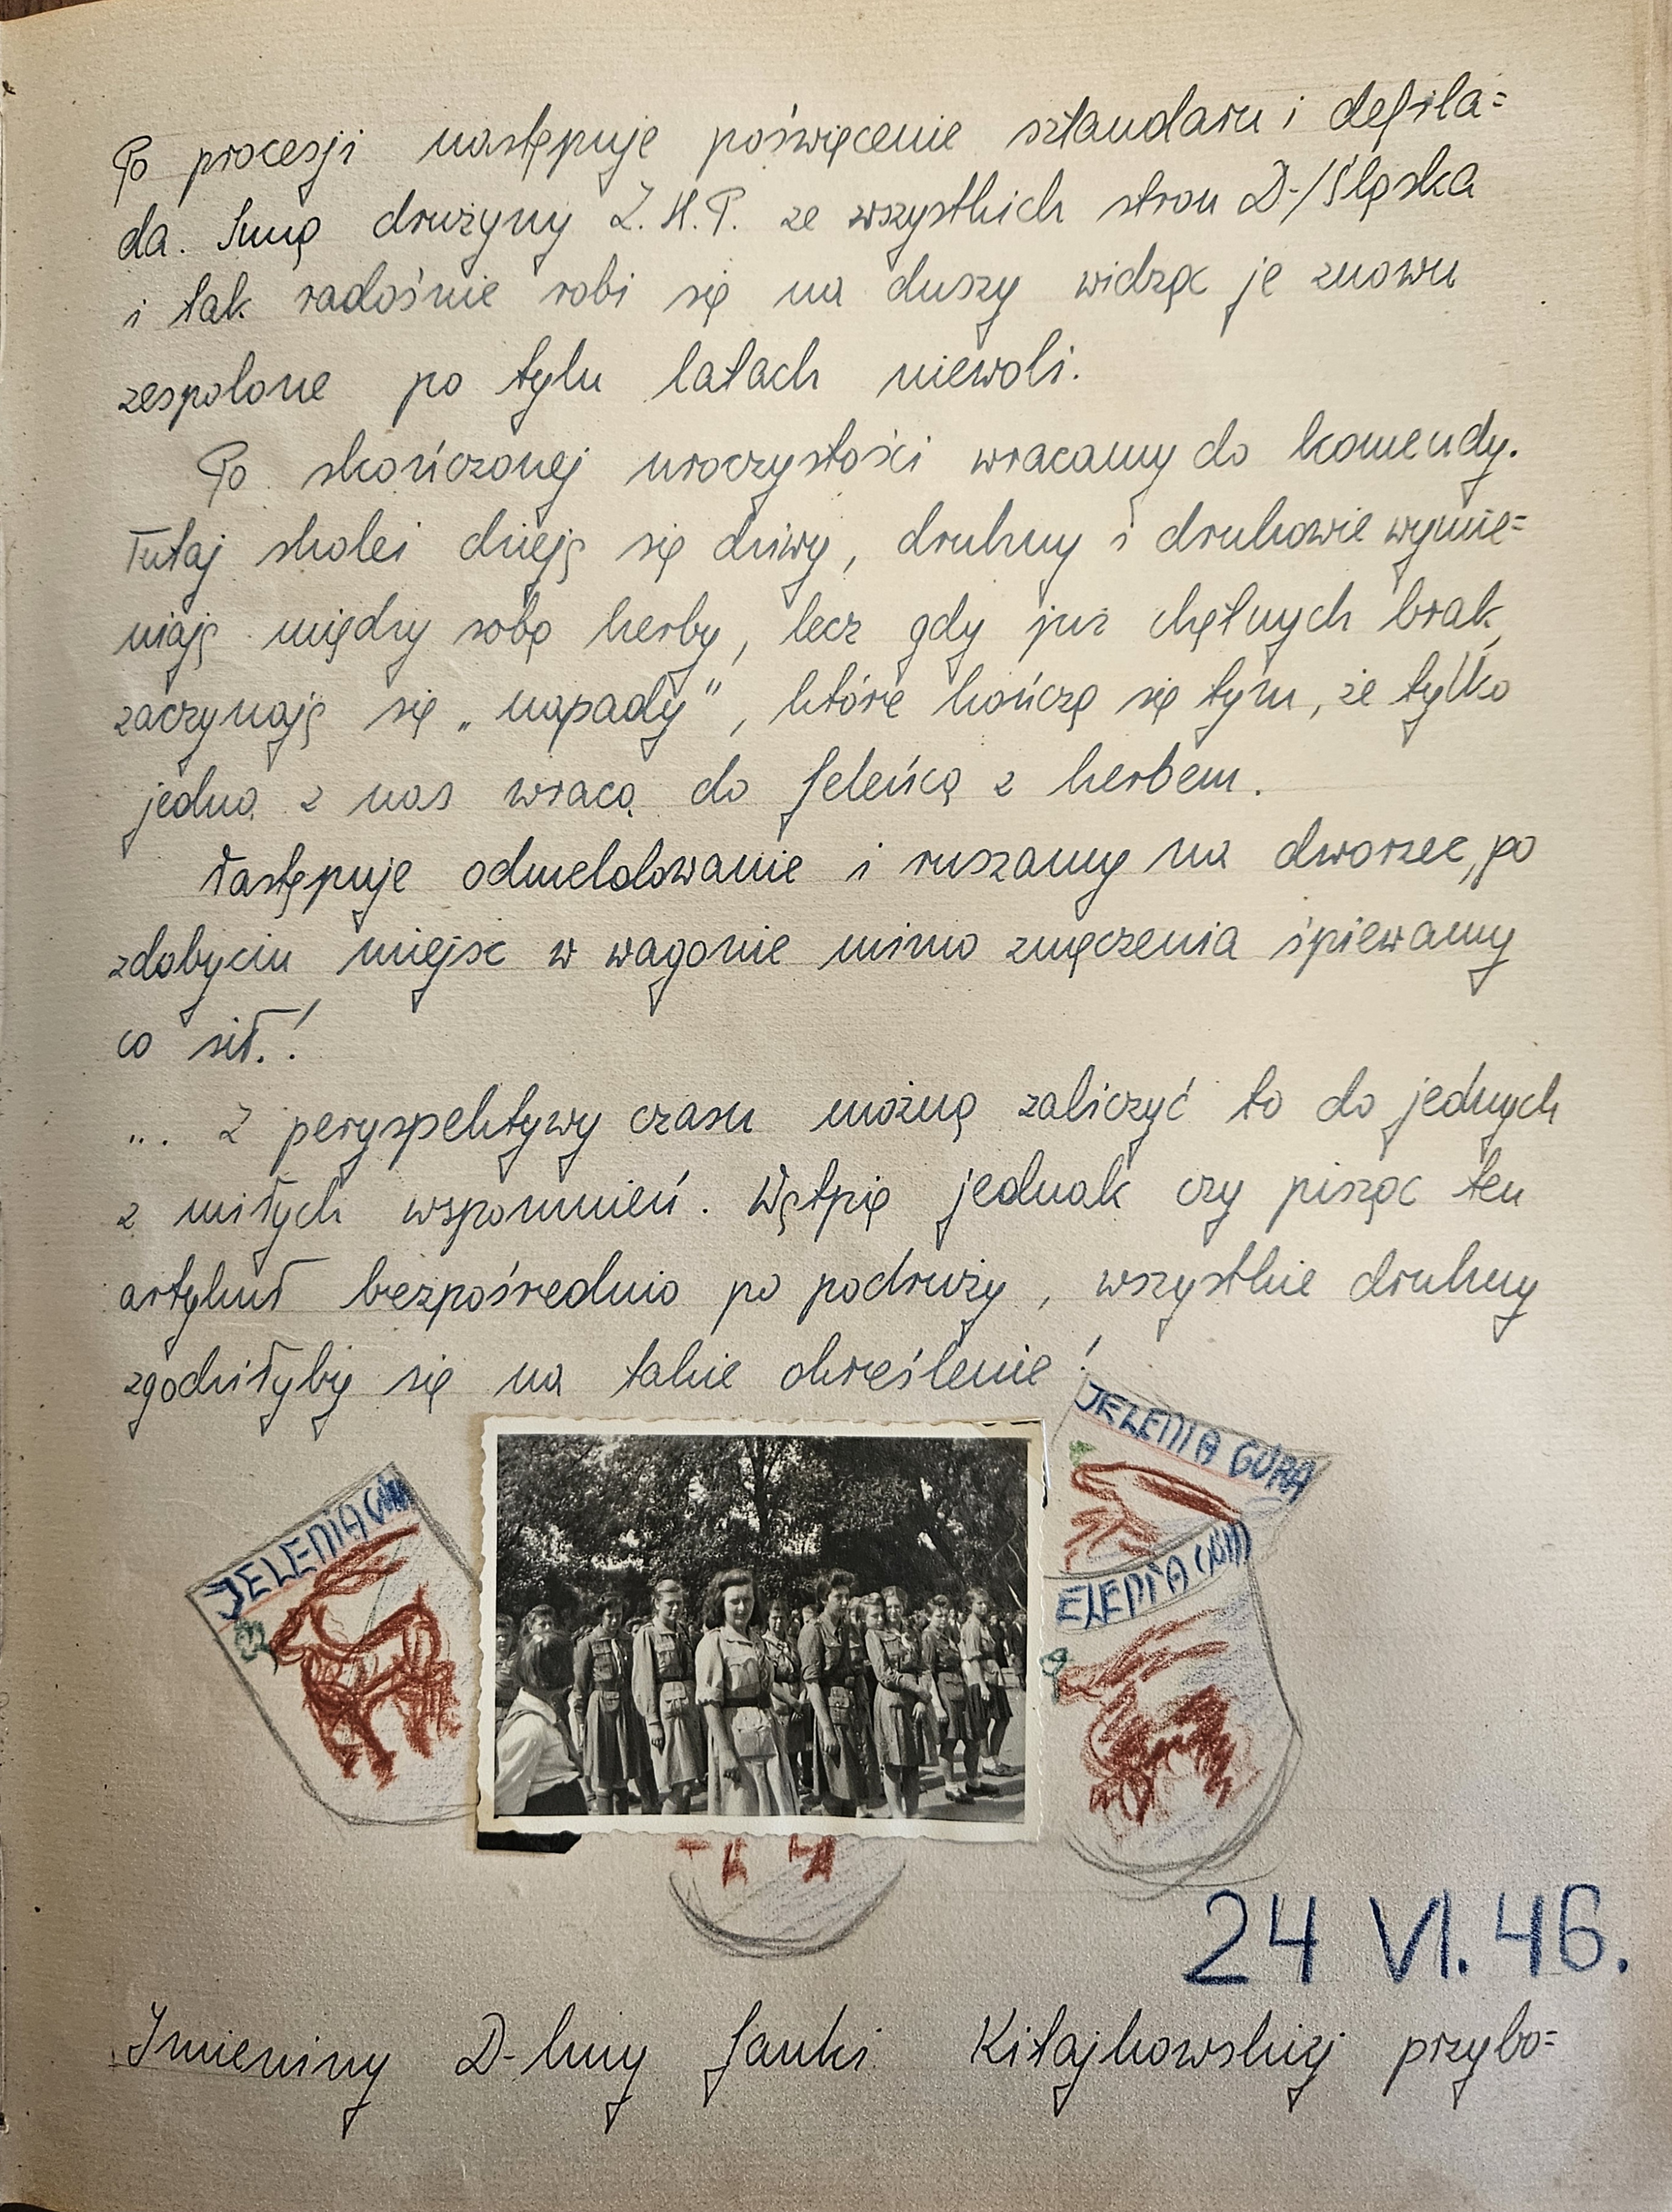 Po procesji następuje poświęcenie sztandaru i defila=
da. Suną drużyny Z.H.P. ze wszystkich stron D-/Śląska
i tak radośnie robi się na duszy widząc je znowu
zespolone po tylu latach niewoli.
Po skończonej uroczystości wracamy do komendy.
Tutaj skolei dzieją się dziwy, druhny i druhowie wymie=
niają między sobą herby, lecz gdy już chętnych brak,
zaczynają się „napady", które kończą się tym, że tylko
jedna z nas wraca do Jeleńca z herbem.
Następuje odmeldowanie i ruszamy na dworzec, po
zdobyciu miejsc w wagonie mimo zmęczenia śpiewamy
co sił.!
... Z peryspektywy czasu można zaliczyć to do jednych
z miłych wspomnień. Wątpię jednak czy pisząc ten
artykuł bezpośrednio po podruży, wszystkie druhny
zgodziłyby się na takie określenie!
JELENIA GÓRA
JELENIA GÓRA
ELENIA GÓRA
24 VI. 46.
Imieniny D-hny Janki Kitajkowskiej przybo=